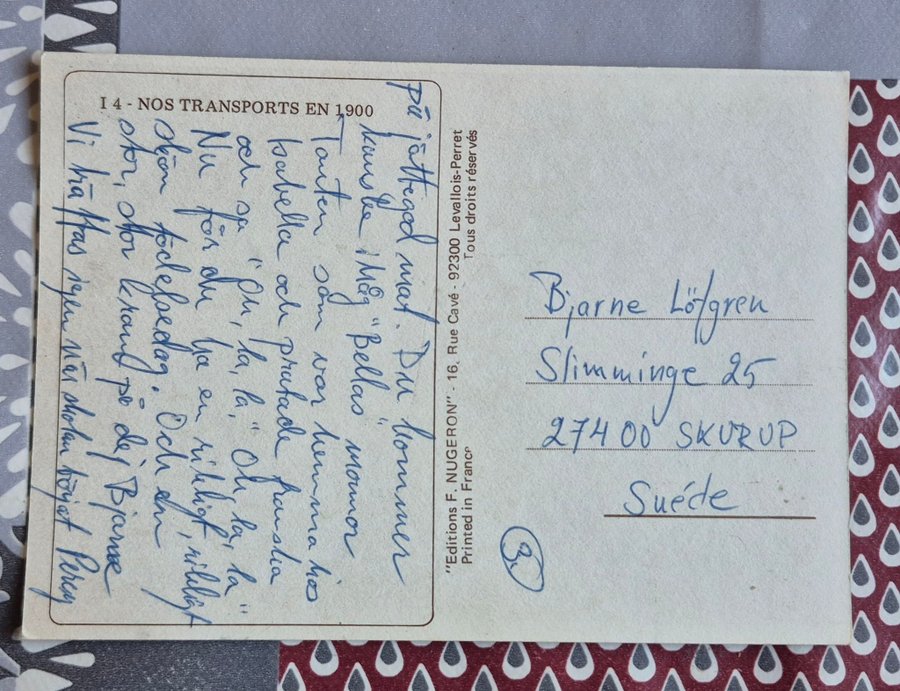 I 4 - NOS TRANSPORTS EN 1900
på jättegod mat. Du kommer
kanske ihåg "Bellas" mormor
Tanten som var hemma hos
Isabella och pratade franska
och sa "Oh, la, la, "Oh, la, la"
Nu får du ha en riktigt, riktigt
skön födelsedag. Och en
stor, stor kram på dej Bjarne
Vi träffas igen när skolan börjat Percy
"Editions F. NUGERON" - 16, Rue Cavé - 92300 Levallois-Perret
Printed in France
Tous droits réservés
Bjarne Löfgren
Slimminge 25
27400 SKURUP
Suéde
3